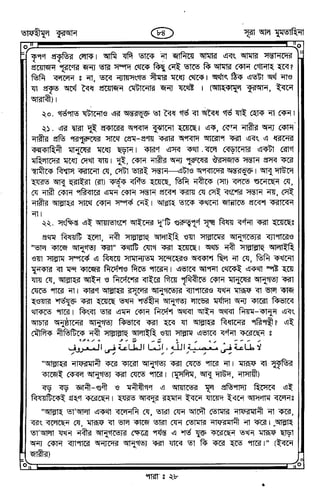 তাফহীমুল কুরআন
৮৪
সূরা আল মুমতাহিনা
কৃপণ প্রকৃতির লোক। আমি যদি তাকে না জানিয়ে আমার এবং আমার সন্তানদের
প্রয়োজন পূরণের জন্য তার সম্পদ থেকে কিছু নেই তাতে কি আমার কোন গোনাহ হবে?
তিনি বললেন : না, তবে ন্যায়সংগত সীমার মধ্যে থেকে। অর্থাৎ ঠিক এতটা অর্থ নাও
যা প্রকৃত অর্থে বৈধ প্রয়োজন মেটানোর জন্য যথেষ্ট। (আহকামুল কুরআন, ইবনে
আরাবী)।
২০. গর্ভপাত ঘটানোও এর অন্তরভুক্ত তা বৈধ গর্ভ বা অবৈধ গর্ভ যাই হোক না কেন।
২১. এর দ্বারা দুই প্রকারের অপবাদ বুঝানো হয়েছে। এক, কোন নারীর অন্য কোন
নারীর প্রতি পরপুরুষের সাথে প্রেম-প্রণয় করার অপবাদ আরোপ করা এবং এ ধরনের
কল্পকাহিনী মানুষের মধ্যে ছড়ান। কারণ এসব কথা বলে বেড়ানোর একটা রোগ
মহিলাদের মধ্যে দেখা যায়। দুই, কোন নারীর অন্য পুরুষের ঔরসজাত সন্তান প্রসব করে
স্বামীকে বিশ্বাস করানো যে, সেটা তারই সন্তান—এটাও অপবাদের অন্তরভুক্ত। আবু দাউদে
হযরত আবু হুরাইরা (রা) কর্তৃক বর্ণিত হয়েছে, তিনি নবীকে (সা) বলতে শুনেছেন যে,
যে নারী কোন পরিবারে এমন কোন সন্তান প্রবেশ করায় যে সেই বংশের সন্তান নয়, সেই
নারীর আল্লাহর সাথে কোন সম্পর্ক নেই। আল্লাহ তাকে কখনো জান্নাতে প্রবেশ করাবেন
না।
২২. সংক্ষিপ্ত এই আয়াতাংশে আইনের দু'টি গুরুত্বপূর্ণ সূক্ষ্ম বিষয় বর্ণনা করা হয়েছেঃ
প্রথম বিষয়টি হলো, নবী সাল্লাল্লাহু আলাইহি ওয়া সাল্লামের আনুগত্যের ব্যাপারেও
"ভাল কাজে আনুগত্য করা" কথাটি যোগ করা হয়েছে। অথচ নবী সাল্লাল্লাহু আলাইহি
ওয়া সাল্লাম সম্পর্কে এ বিষয়ে সামান্যতম সন্দেহেরও অবকাশ ছিল না যে, তিনি কখনো
মুনকার বা মন্দ কাজের নির্দেশও দিতে পারেন। এভাবে আপনা থেকেই একথা স্পষ্ট হয়ে
যায় যে, আল্লাহর আইন ও নির্দেশের বাইরে গিয়ে পৃথিবীতে কোন মানুষের আনুগত্য করা
যেতে পারে না। কারণ আল্লাহর রসূলের আনুগত্যের ব্যাপারেও যখন মারূফ বা ভাল কাজ
হওয়ার শর্তযুক্ত করা হয়েছে তখন শর্তহীন আনুগত্য লাভের মর্যাদা অন্য কারো কিভাবে
থাকতে পারে। কিংবা তার এমন কোন নির্দেশ অথবা আইন অথবা নিয়ম-কানুন এবং
আচার অনুষ্ঠানের আনুগত্য কিভাবে করা হবে যা আল্লাহর বিধানের পরিপন্থী। এই
মৌলিক নীতিটিকে নবী সাল্লাল্লাহু আলাইহি ওয়া সাল্লাম এভাবে বর্ণনা করেছেনঃ
لا طاعة في معصية الله ، إنما الطاعة في المعروف
"আল্লাহর নাফরমানী করে কারো আনুগত্য করা যেতে পারে না। মারূফ বা সুকৃতির
কাজেই কেবল আনুগত্য করা যেতে পারে। (মুসলিম, আবু দাউদ, নাসায়ী)
বড় বড় জ্ঞানী-গুণী ও মনীষীগণ এ আয়াতের মূল প্রতিপাদ্য হিসেবে এই
বিষয়টিকেই গ্রহণ করেছেন। হযরত আবদুর রহমান ইবনে যায়েদ ইবনে আসলাম বলেনঃ
"আল্লাহ তা'আলা একথা বলেননি যে, তারা যেন আদৌ তোমার নাফরমানী না করে,
বরং বলেছেন যে, মারূফ বা ভাল কাজে তারা যেন তোমার নাফরমানী না করে। আল্লাহ
তা'আলা যখন নবীর আনুগত্যের ক্ষেত্রে পর্যন্ত এ শর্ত যুক্ত করেছেন তখন মারূফ ছাড়া
অন্য কোন ব্যাপারে অন্যদের আনুগত্য করা যাবে তা কি করে হতে পারে।" (ইবনে
জারীর)
পারা : ২৮